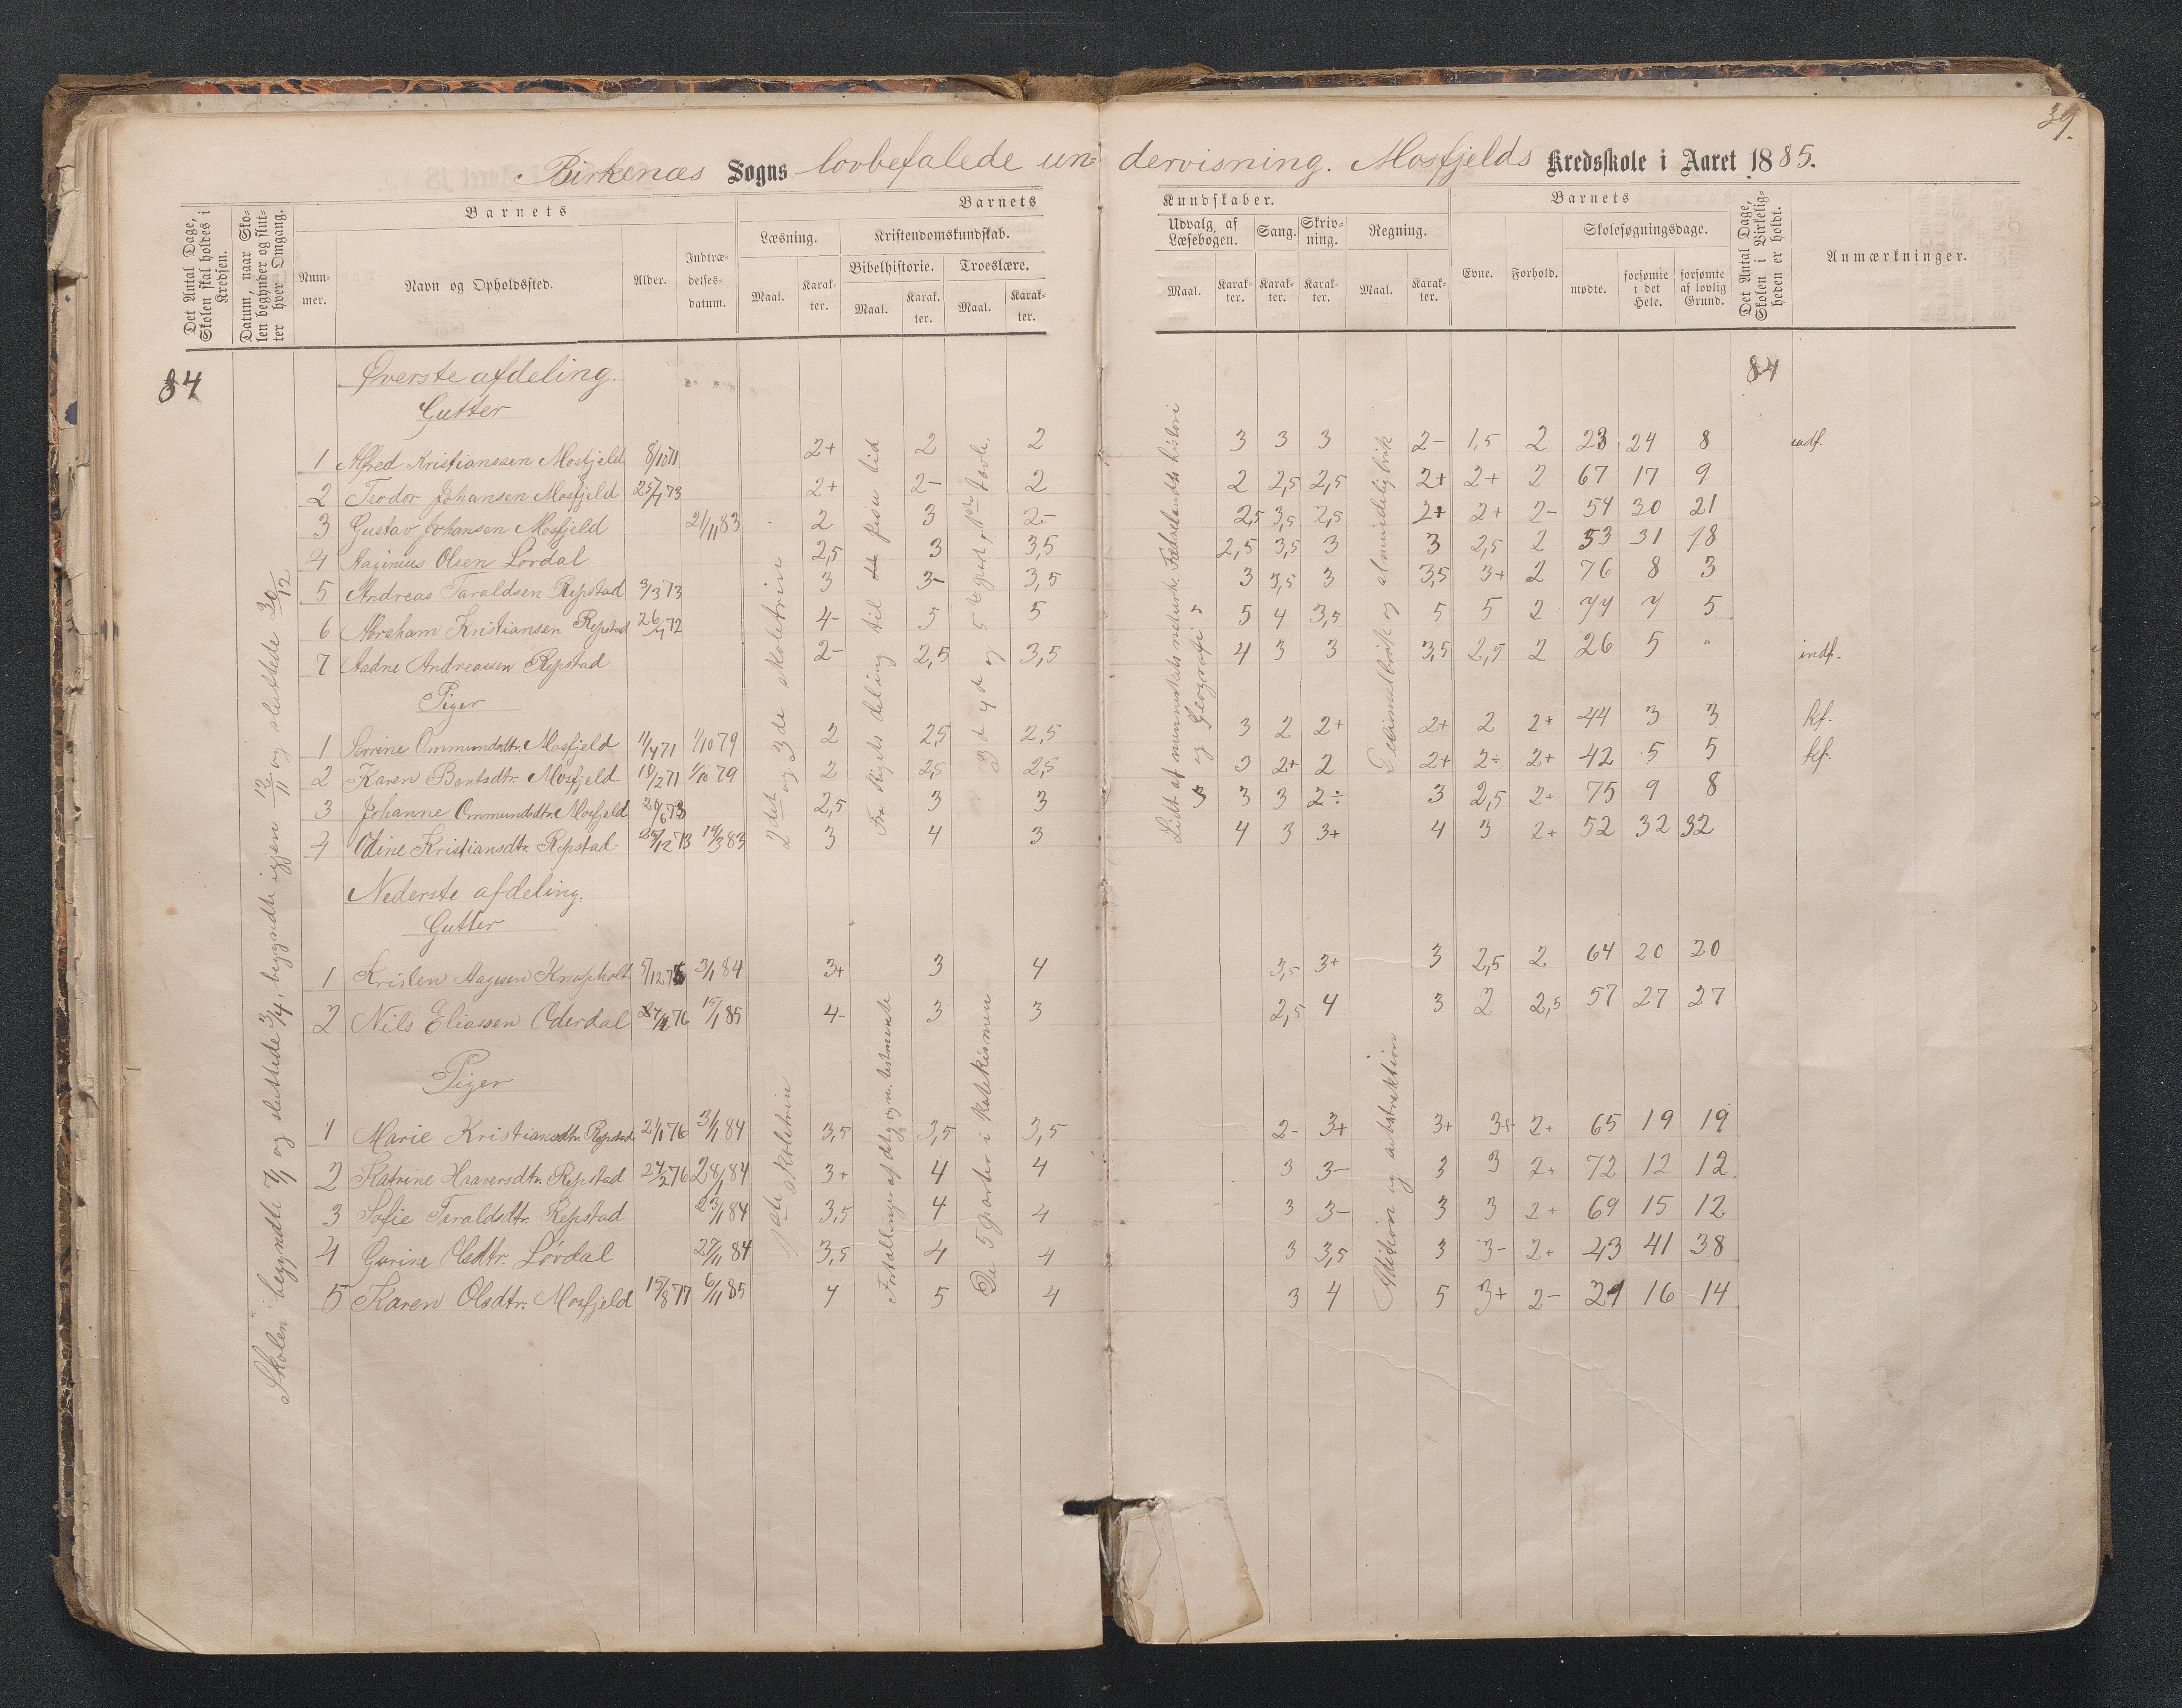 39.
Birkenæs Sogns lovbefalede un- dervisning. Mosfjelds Kredsskole i Aaret 1885.
Det Antal Dage, Skolen skal holdes i Kredsen.
Datum, naar Skolen begynder og slutter hver Omgang.
Barnets
Nummer.
Navn og Opholdssted.
Alder.
Indtrædelsesdatum.
Barnets Kundskaber.
Læsning.
Maal.
Karakter.
Kristendomskundskab.
Bibelhistorie.
Maal.
Karakter.
Troeslære.
Maal.
Karakter.
Udvalg af Læsebogen.
Maal.
Karakter.
Sang.
Karakter.
Skrivning.
Karakter.
Regning.
Maal.
Karakter.
Barnets
Evne.
Forhold.
Skolesøgningsdage.
mødte.
forsømte i det Hele.
forsømte af lovlig Grund.
Det Antal Dage, Skolen i Virkeligheden er holdt.
Anmærkninger.
84 84
Skolen begyndte 7/1 og sluttede 3/4, begyndte igjen 13/11 og sluttede 30/12
Øverste afdeling.
Gutter
2det og 3de skoletrin
Fra Rigets deling til Jesu tid
3d 4d og 5te part, 1ste tavle.
Lidt af menneskets naturh. Fædrelandets histori og Geografi
Decimalbrøk og almindeligbrøk
1 Alfred Kristianssen Mosfjeld 8/10 71 2+ 2 2 3 3 3 2- 1,5 2 23 24 8 indf.
2 Teodor Johansen Mosfjeld 25/7 73 2+ 2- 2 2 2,5 2,5 2+ 2+ 2 67 17 9
3 Gustav Johansen Mosfjeld 21/11 83 2 3 2- 2,5 3,5 2,5 2+ 2+ 2- 54 30 21
4 Aaginius Olsen Lovdal 2,5 3 3,5 2,5 3,5 3 3 2,5 2 53 31 18
5 Andreas Taraldsen Repstad 3/3 73 3 3- 3,5 3 3,5 3 3,5 3+ 2 76 8 3
6 Abraham Kristiansen Repstad 26/7 72 4- 5 5 5 4 3,5 5 5 2 77 7 5
7 Aadne Andreassen Repstad 2- 2,5 3,5 4 3 3 3,5 2,5 2 26 5 " indf.
Piger
1 Serrine Ommundsdtr. Mosfjeld 11/4 71 1/10 79 2 2,5 2,5 3 2 2+ 2+ 2 2+ 44 3 3 kf.
2 Karen Bentsdtr. Mosfjeld 10/2 71 1/10 79 2 2,5 2,5 3 2+ 2 2+ 2÷ 2+ 42 5 5 kf.
3 Johanne Ommundsdtr. Mosfjeld 20/6 73 2,5 3 3 3 3 2÷ 3 2,5 2+ 75 9 8
4 Odine Kristiansdtr. Repstad 25/12 73 19/3 83 3 4 3 4 3 3+ 4 3 2+ 52 32 32
Nederste afdeling.
Gutter
1ste skoletrin
Fortællinger af det gl. og n. testmente
De 5 parter i katekismen
Adition og subtraktion
1 Kristen Aagesen Knapholt 5/12 75 3/1 84 3+ 3 4 3,5 3+ 3 2,5 2 64 20 20
2 Nils Eliassen Oderdal 76 15/1 85 4- 3 3 2,5 4 3 2 2,5 57 27 27
Piger
1 Marie Kristiansdtr. Repstad 21/1 76 3/1 84 3,5 3,5 3,5 2- 3+ 3+ 3+ 2+ 65 19 19
2 Katrine Haaversdtr. Repstad 24/2 76 28/1 84 3+ 4 4 3 3- 3 3 2+ 72 12 12
3 Sofie Taraldsdtr. Repstad 23/1 84 3,5 4 4 3 3- 3 3 2+ 69 15 12
4 Gurine Olsdtr. Lovdal 27/11 84 3,5 4 4 3 3,5 3 3- 2+ 43 41 38
5 Karen Olsdtr. Mosfjeld 15/8 77 6/11 85 4 5 4 3 4 5 3+ 2- 21 16 14